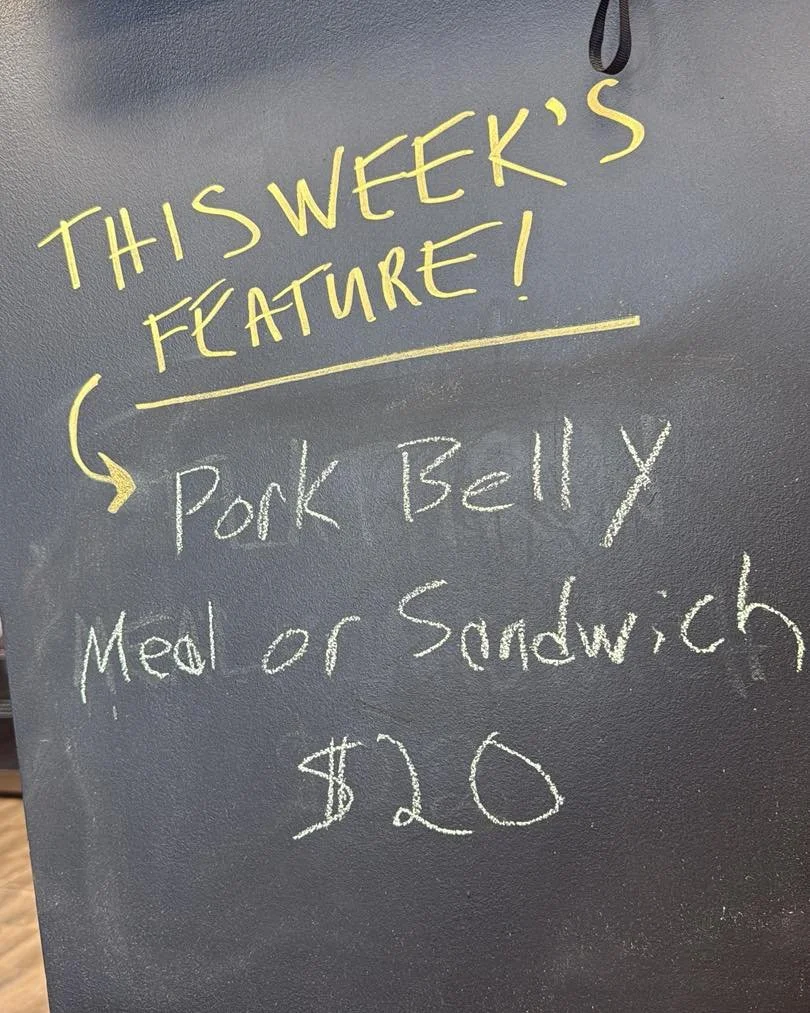 THIS WEEK'S
FEATURE!
Pork Belly
Meal or Sandwich
$20